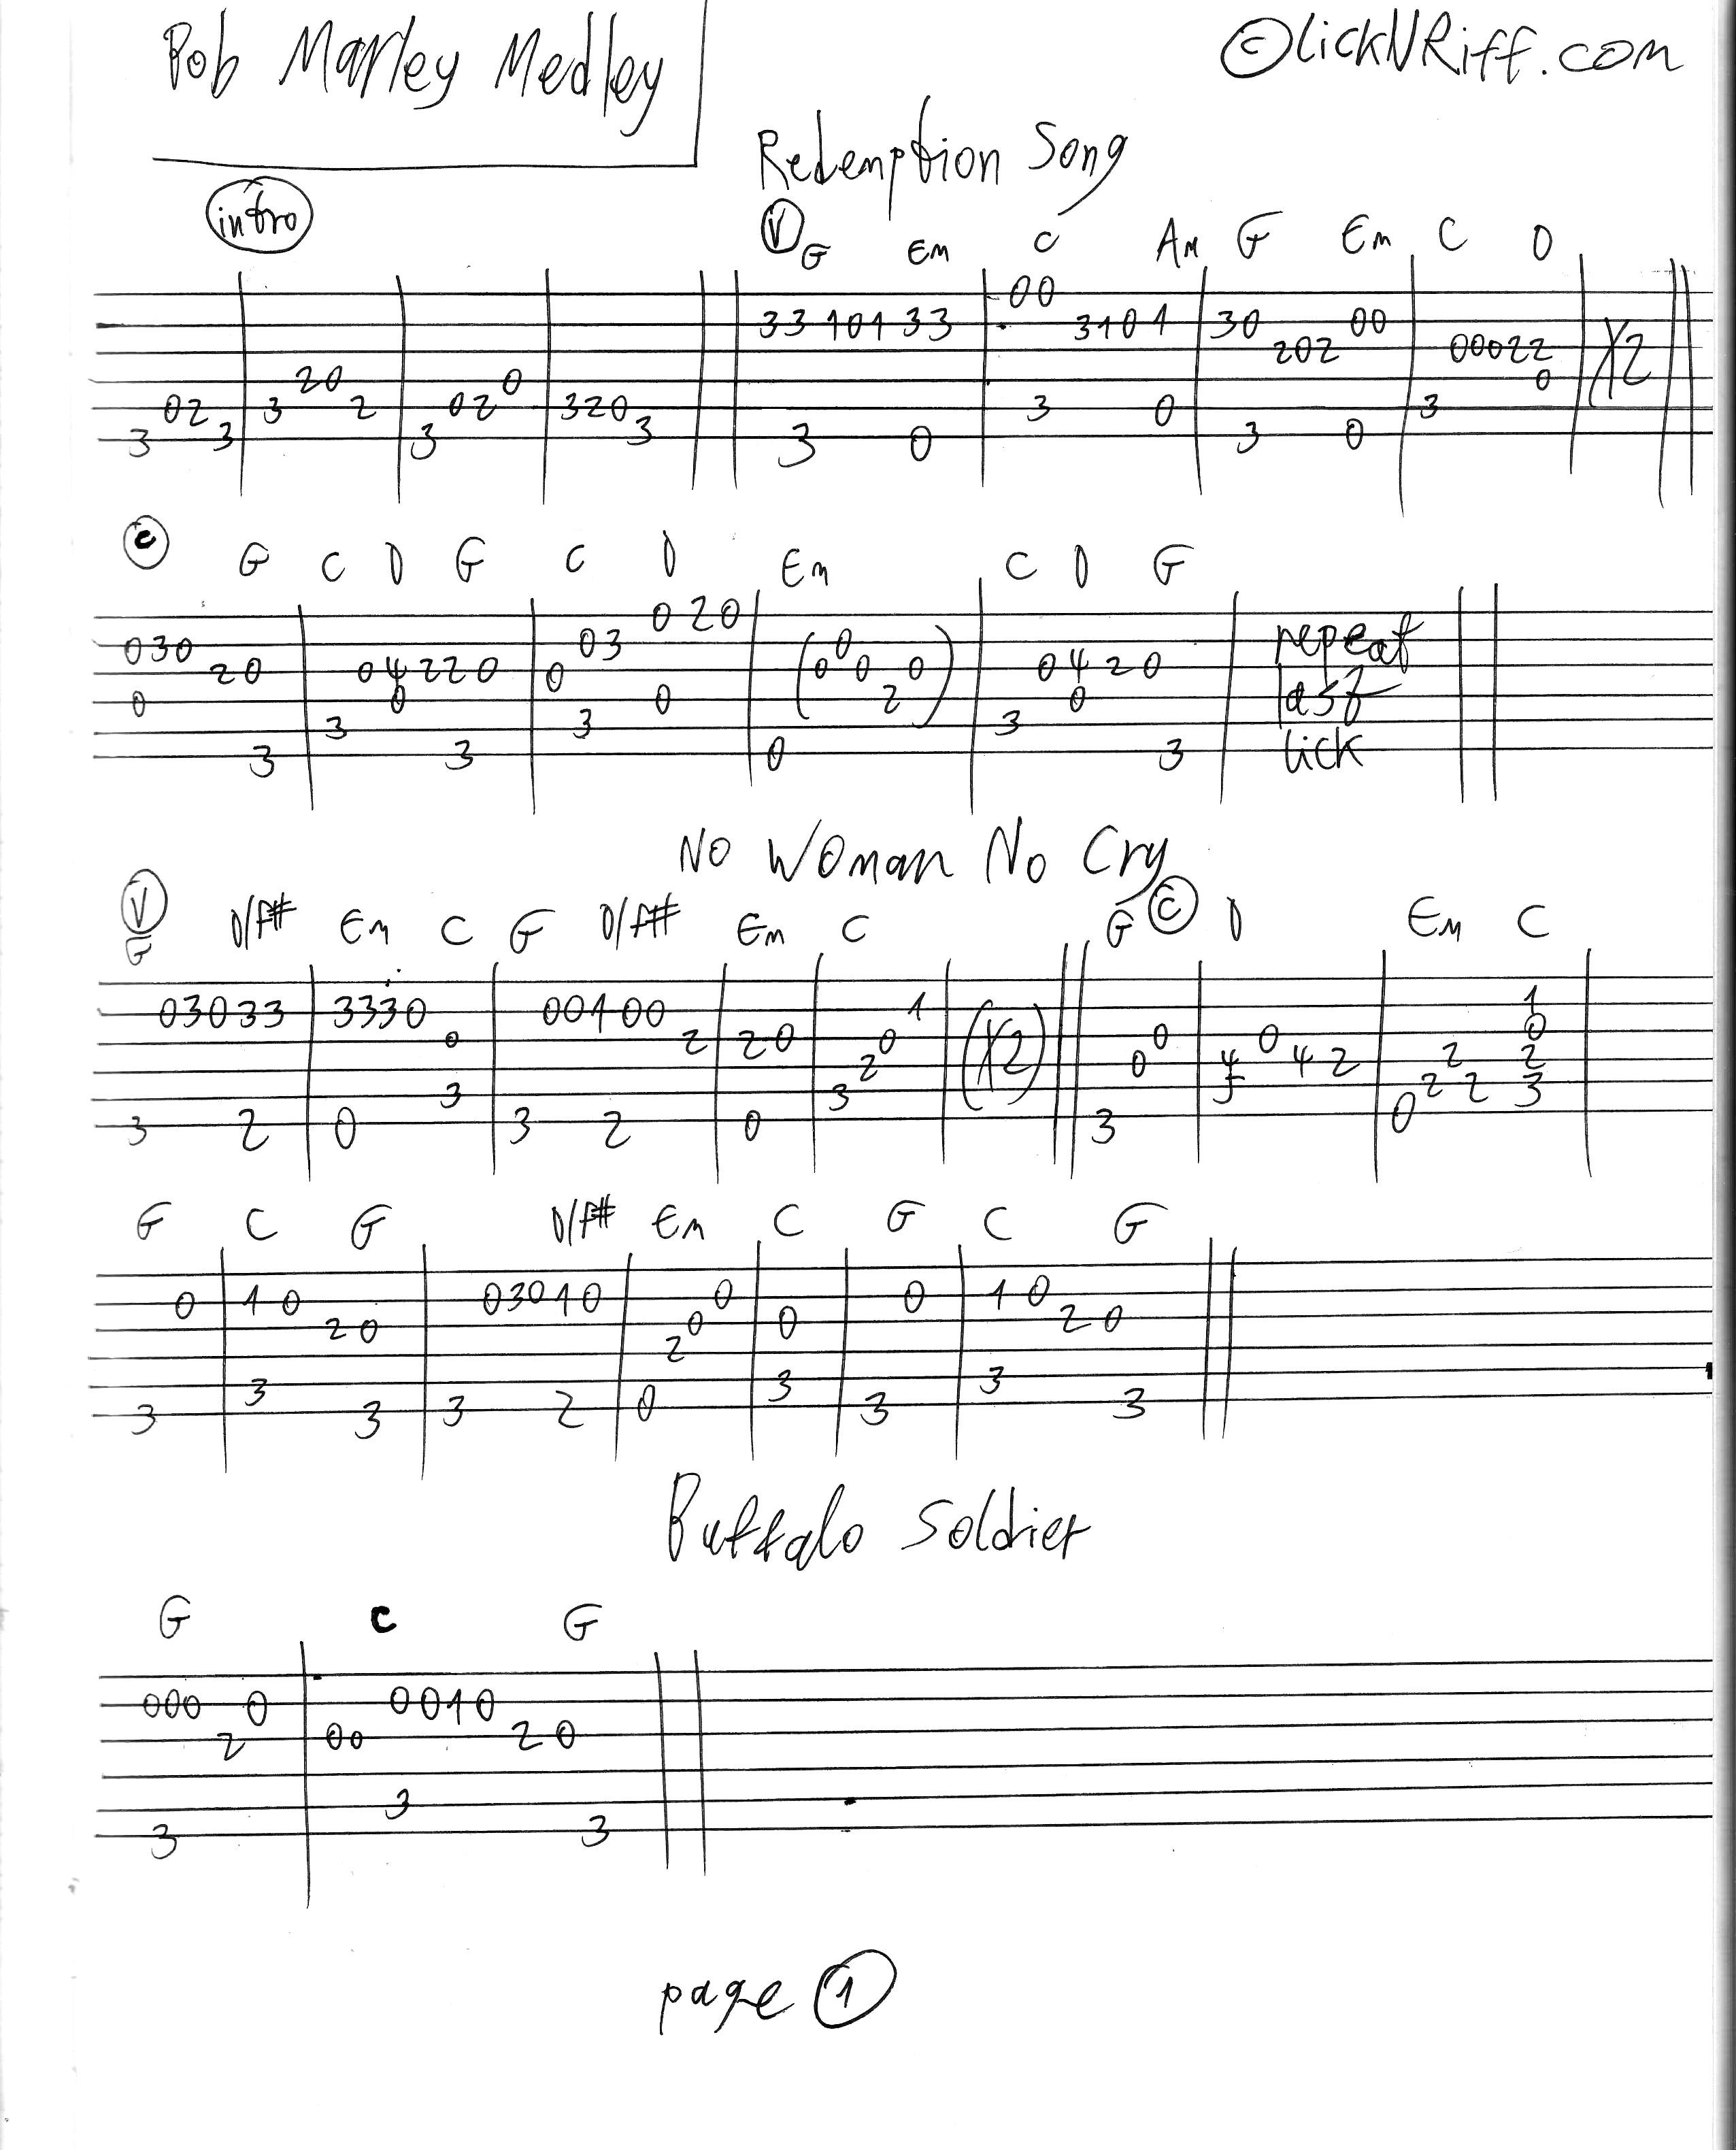 Bob Marley Medley
©lickNRiff.com
Redemption Song
intro
V G Em C Am G Em C D
00
33 101 33 3101 30 00
202 00022
20 0 0
02 3 2 02 320 3 0 3
3 3 3 3 3 0 3 0
X2
C G C D G C D Em C D G
0 20
030 03 0
20 04220 0 0 0 0 0420
0 0 0 2 0
3 3 3
3 3 0 3
repeat
last
lick
No Woman No Cry
V G D/F# Em C G D/F# Em C G C D Em C
1
03033 3330 00100 1 0
0 2 20 0 0 0
2 0 4 42 2 2
3 3 5 2 2 3
3 2 0 3 2 0 3 0
(X2)
G C G D/F# Em C G C G
0 10 03010 0 0 10
20 0 0 20
2
3 3 3
3 3 3 2 0 3 3
Buffalo Soldier
G C G
000 0 0010
2 00 20
3
3 3
page 1